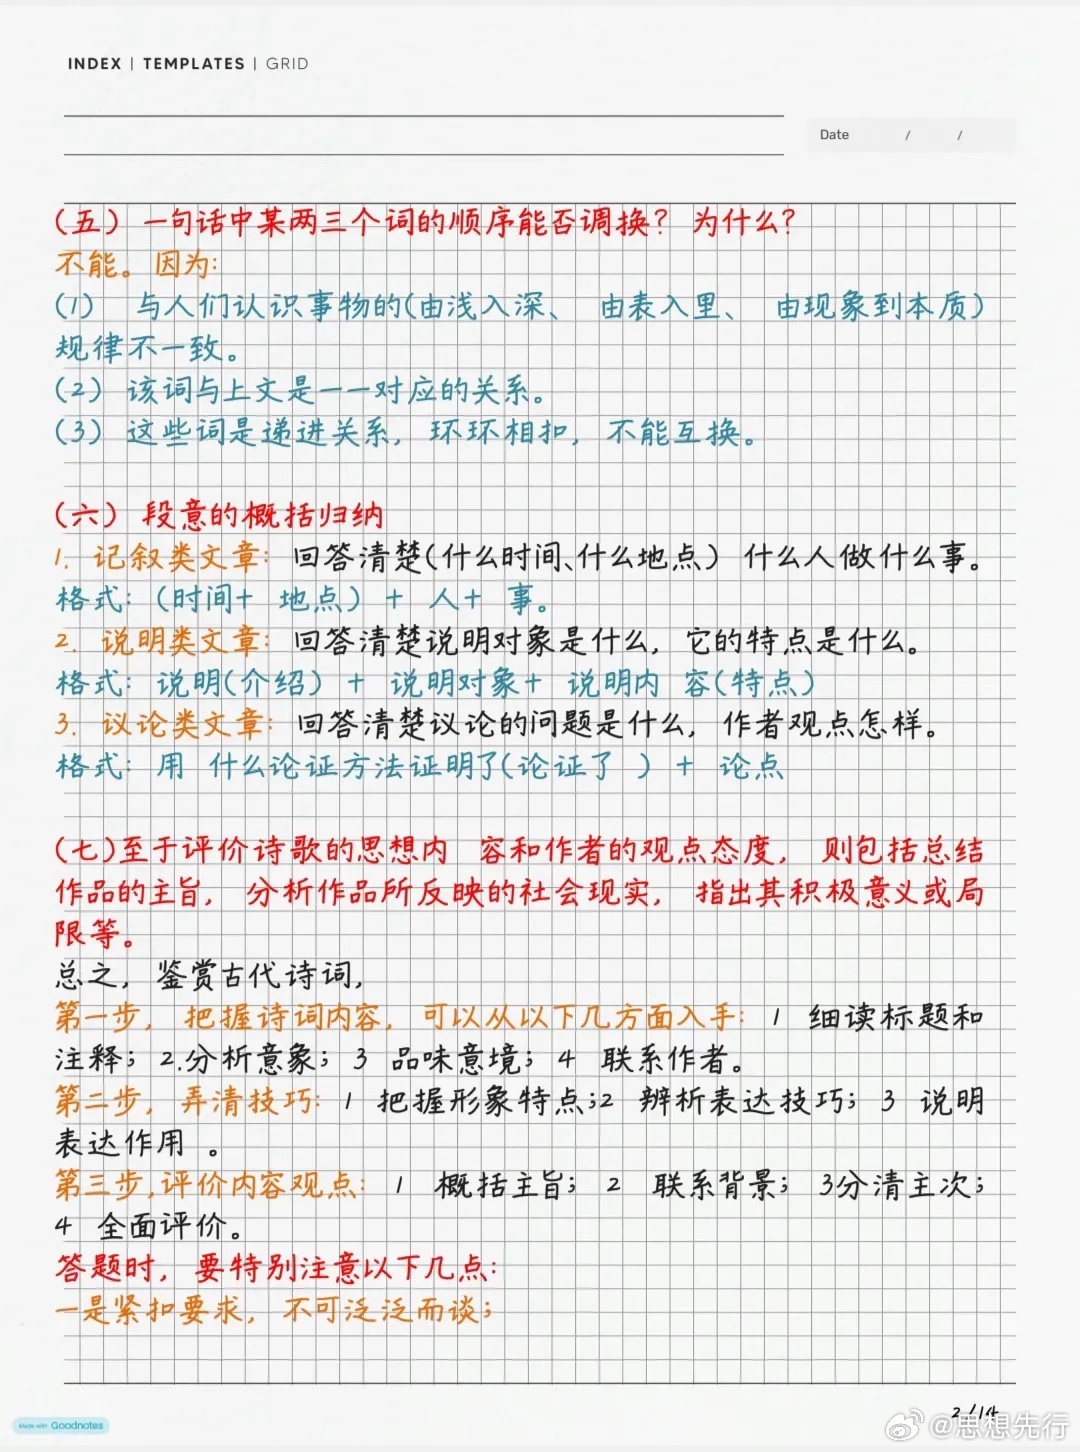 INDEX | TEMPLATES | GRID
Date / /
(五) 一句话中某两三个词的顺序能否调换? 为什么?
不能。因为:
(1) 与人们认识事物的(由浅入深、 由表入里、 由现象到本质)
规律不一致。
(2) 该词与上文是一一对应的关系。
(3) 这些词是递进关系, 环环相扣, 不能互换。
(六) 段意的概括归纳
1. 记叙类文章: 回答清楚(什么时间、什么地点) 什么人做什么事。
格式: (时间+ 地点) + 人+ 事。
2. 说明类文章: 回答清楚说明对象是什么, 它的特点是什么。
格式: 说明(介绍) + 说明对象+ 说明内 容(特点)
3. 议论类文章: 回答清楚议论的问题是什么, 作者观点怎样。
格式: 用 什么论证方法证明了(论证了 ) + 论点
(七)至于评价诗歌的思想内 容和作者的观点态度, 则包括总结
作品的主旨, 分析作品所反映的社会现实, 指出其积极意义或局
限等。
总之, 鉴赏古代诗词,
第一步, 把握诗词内容, 可以从以下几方面入手: 1 细读标题和
注释; 2.分析意象; 3 品味意境; 4 联系作者。
第二步, 弄清技巧: 1 把握形象特点;2 辨析表达技巧; 3 说明
表达作用 。
第三步,评价内容观点: 1 概括主旨; 2 联系背景; 3分清主次;
4 全面评价。
答题时, 要特别注意以下几点:
一是紧扣要求, 不可泛泛而谈;
2/14
Made with Goodnotes
@思想先行